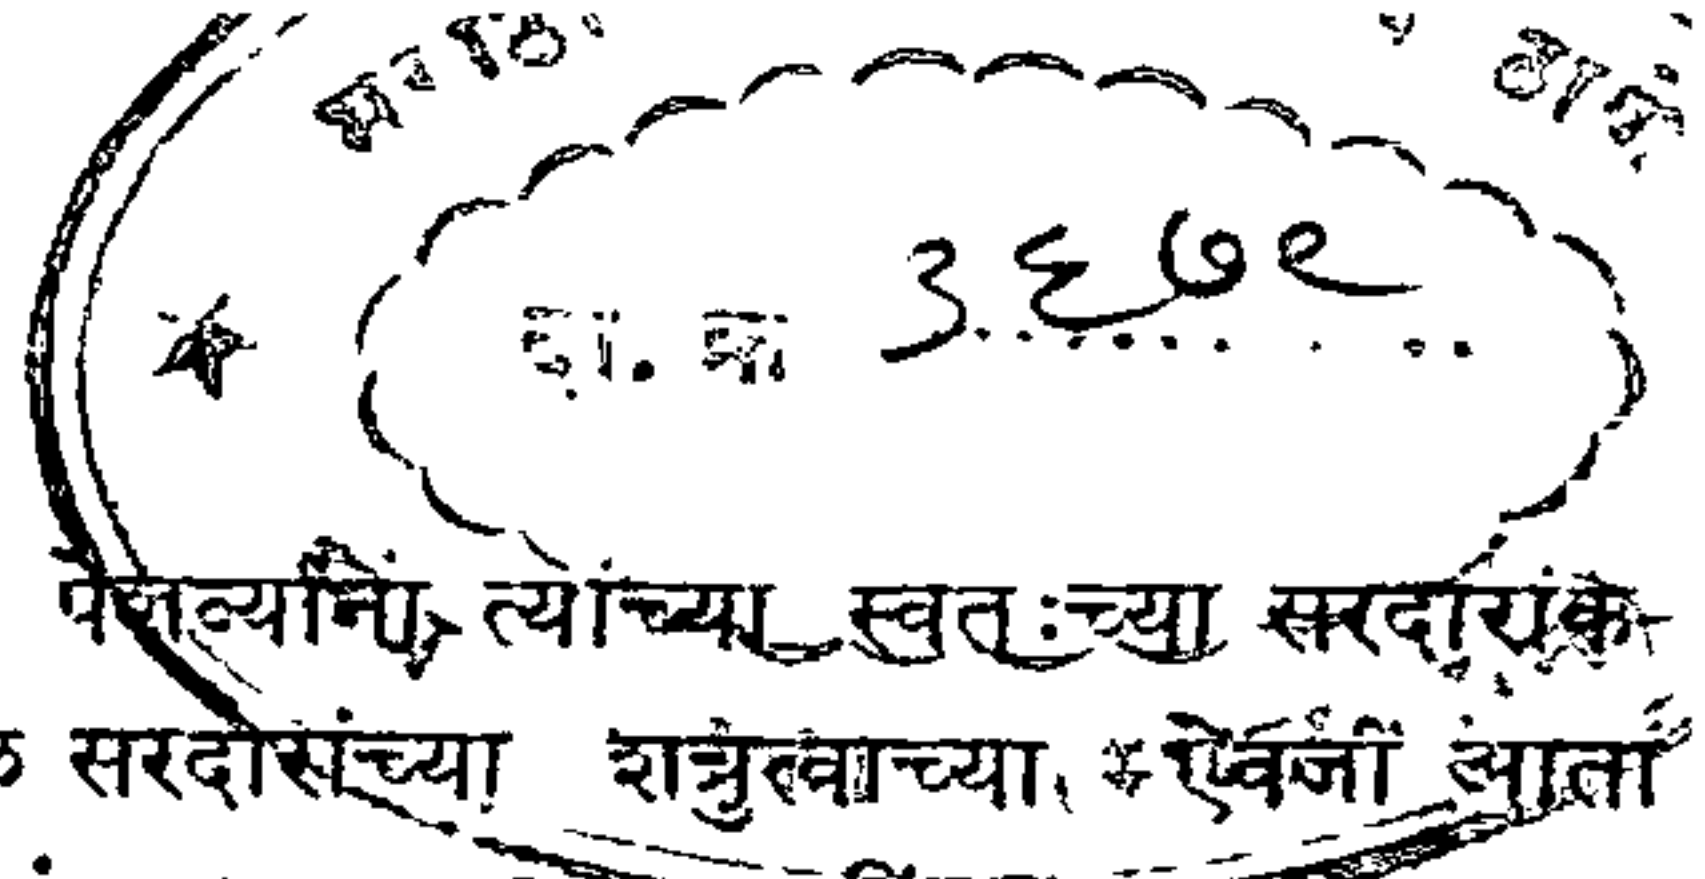 दा. क्र ३६७९
पेशव्यांना त्यांच्या स्वतःच्या सरदारांक
सरदारांच्या शत्रुत्वाच्या ऐवजीं आतां